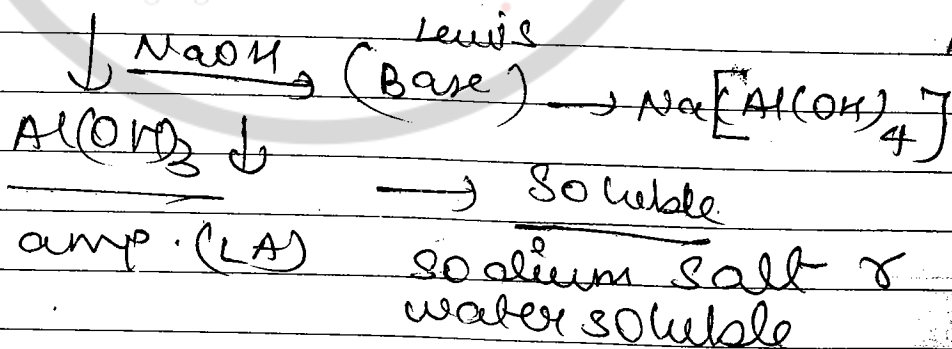 Lewis
↓ NaOH → (Base) → Na[Al(OH)4]
Al(OH)3 ↓ → Soluble
amp. (LA) sodium salt r
water soluble